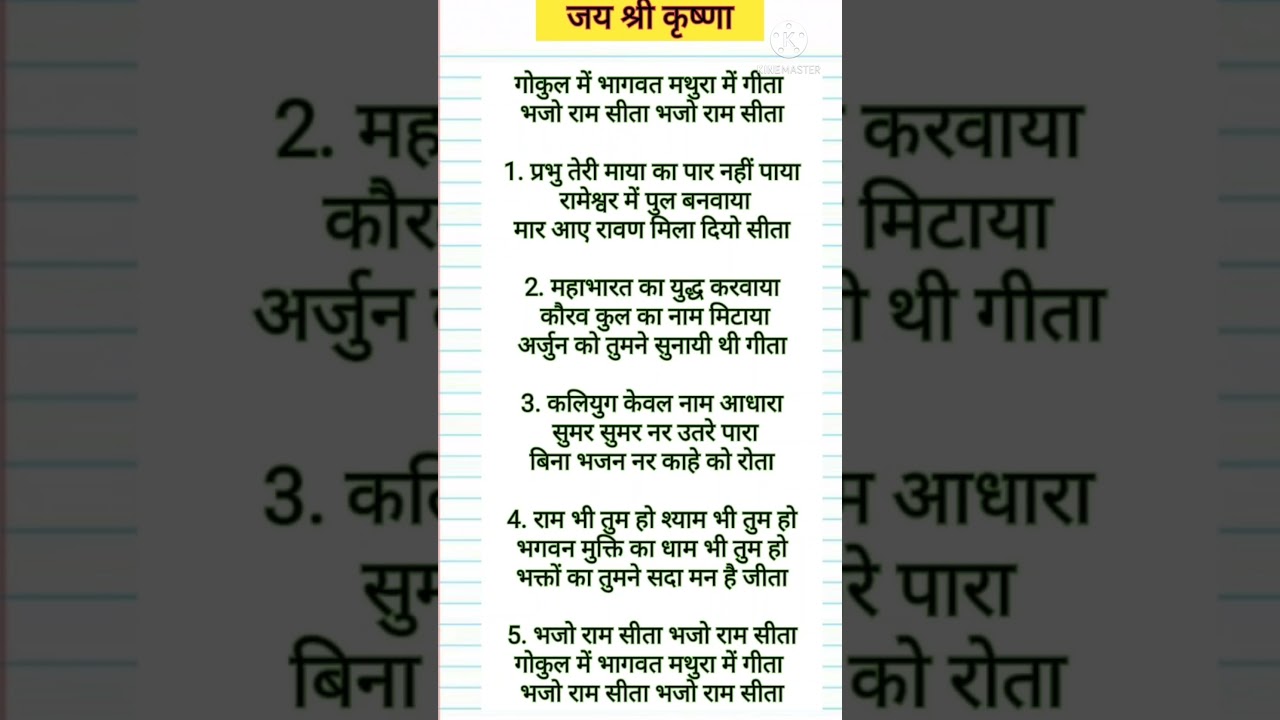 जय श्री कृष्णा
KINEMASTER
गोकुल में भागवत मथुरा में गीता
भजो राम सीता भजो राम सीता
1. प्रभु तेरी माया का पार नहीं पाया
रामेश्वर में पुल बनवाया
मार आए रावण मिला दियो सीता
2. महाभारत का युद्ध करवाया
कौरव कुल का नाम मिटाया
अर्जुन को तुमने सुनायी थी गीता
3. कलियुग केवल नाम आधारा
सुमर सुमर नर उतरे पारा
बिना भजन नर काहे को रोता
4. राम भी तुम हो श्याम भी तुम हो
भगवन मुक्ति का धाम भी तुम हो
भक्तों का तुमने सदा मन है जीता
5. भजो राम सीता भजो राम सीता
गोकुल में भागवत मथुरा में गीता
भजो राम सीता भजो राम सीता